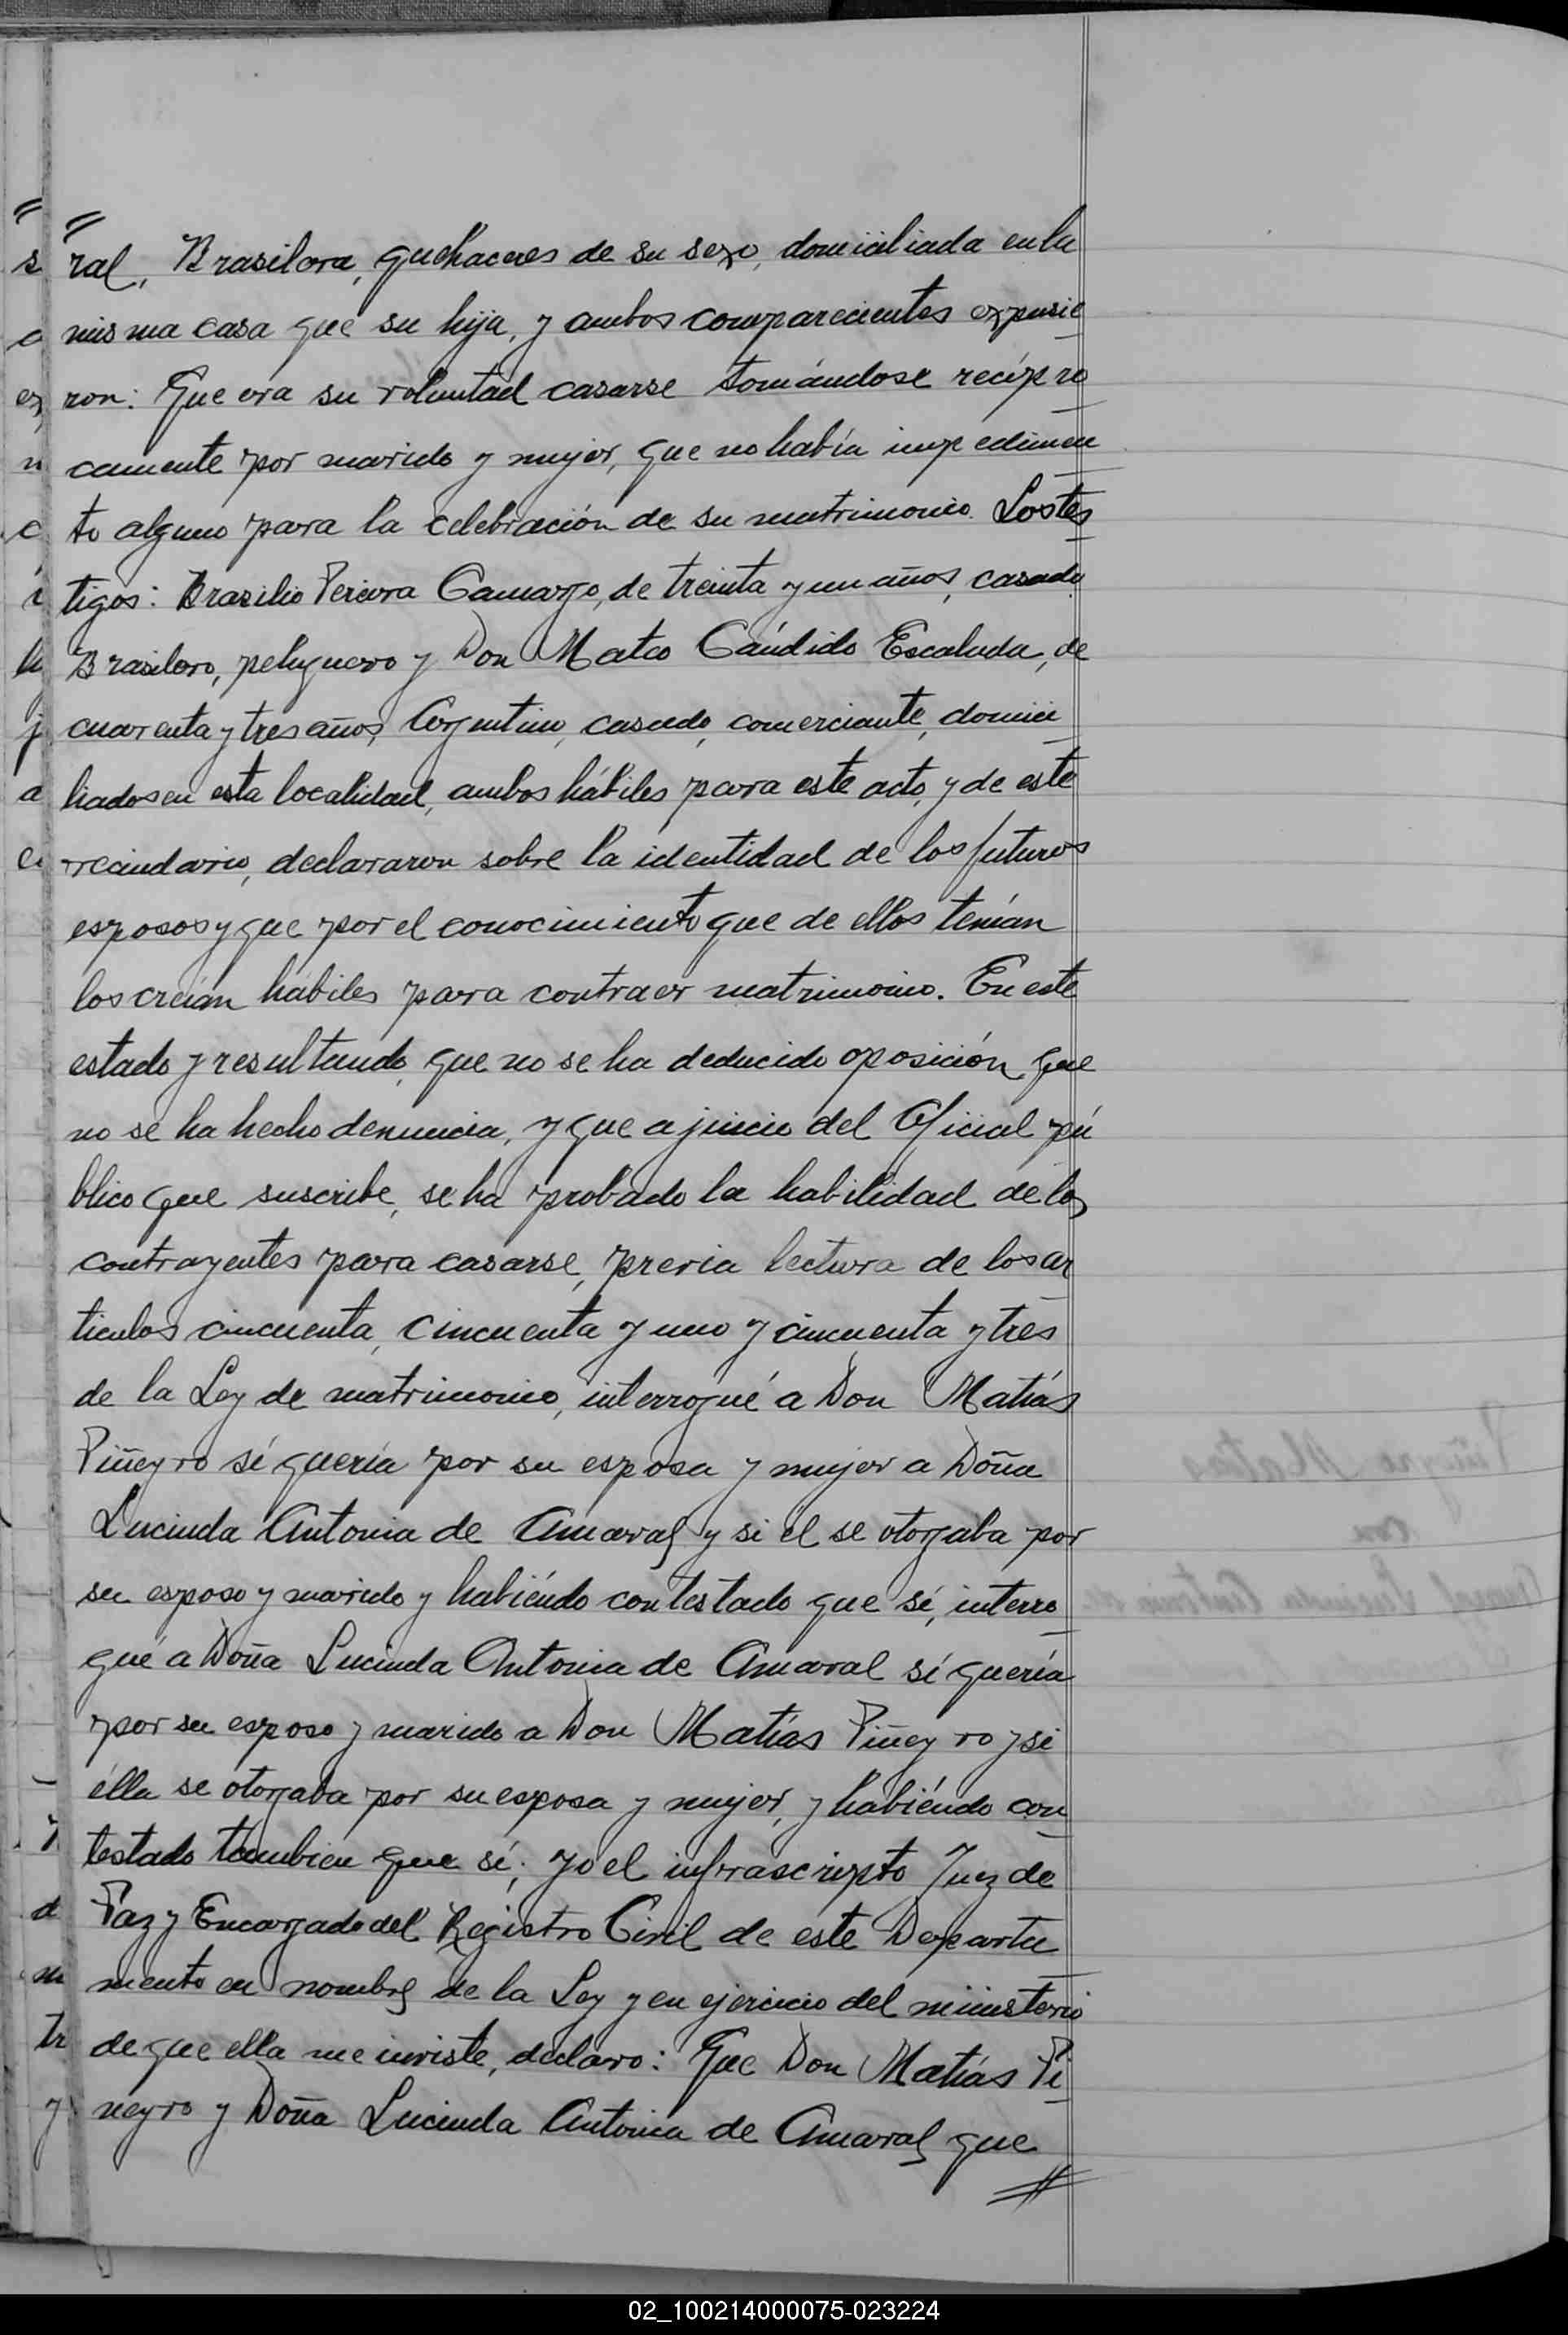 ral, Brasilera, quehaceres de su sexo, domiciliada en la
misma casa que su hija, y ambos comparecientes expusie
ron: Que era su voluntad casarse tomándose recípro
camente por marido y mujer, que no había impedimen
to alguno para la celebración de su matrimonio. Los tes
tigos: Brazilio Pereira Camargo, de treinta y un años, casado
Brasilero, peluquero y Don Mateo Cándido Escalada, de
cuarenta y tres años, Argentino, casado, comerciante, domici
liados en esta localidad, ambos hábiles para este acto, y de este
vecindario, declararon sobre la identidad de los futuros
esposos y que por el conocimiento que de ellos tenían
los creían hábiles para contraer matrimonio. En este
estado y resultando, que no se ha deducido oposición, que
no se ha hecho denuncia, y que a juicio del Oficial pú
blico que suscribe, se ha probado la habilidad de los
contrayentes para casarse, previa lectura de los ar
ticulos cincuenta, cincuenta y uno y cincuenta y tres
de la Ley de matrimonio, interrogué a Don Matías
Piñeyro sí quería por su esposa y mujer a Doña
Lucinda Antonia de Amaral y si él se otorgaba por
su esposo y marido y habiéndo contestado que sí, interro
gué a Doña Lucinda Antonia de Amaral sí quería
por su esposo y marido a Don Matías Piñeyro y si
élla se otorgaba por su esposa y mujer, y habiéndo con
testado támbien que sí; yo el infrascripto Juez de
Paz y Encargado del Registro Civil de este Departa
mento en nombre de la Ley y en ejercicio del ministerio
de que ella me inviste, declaro: Que Don Matías Pi
neyro y Doña Lucinda Antonia de Amaral que
02_100214000075-023224